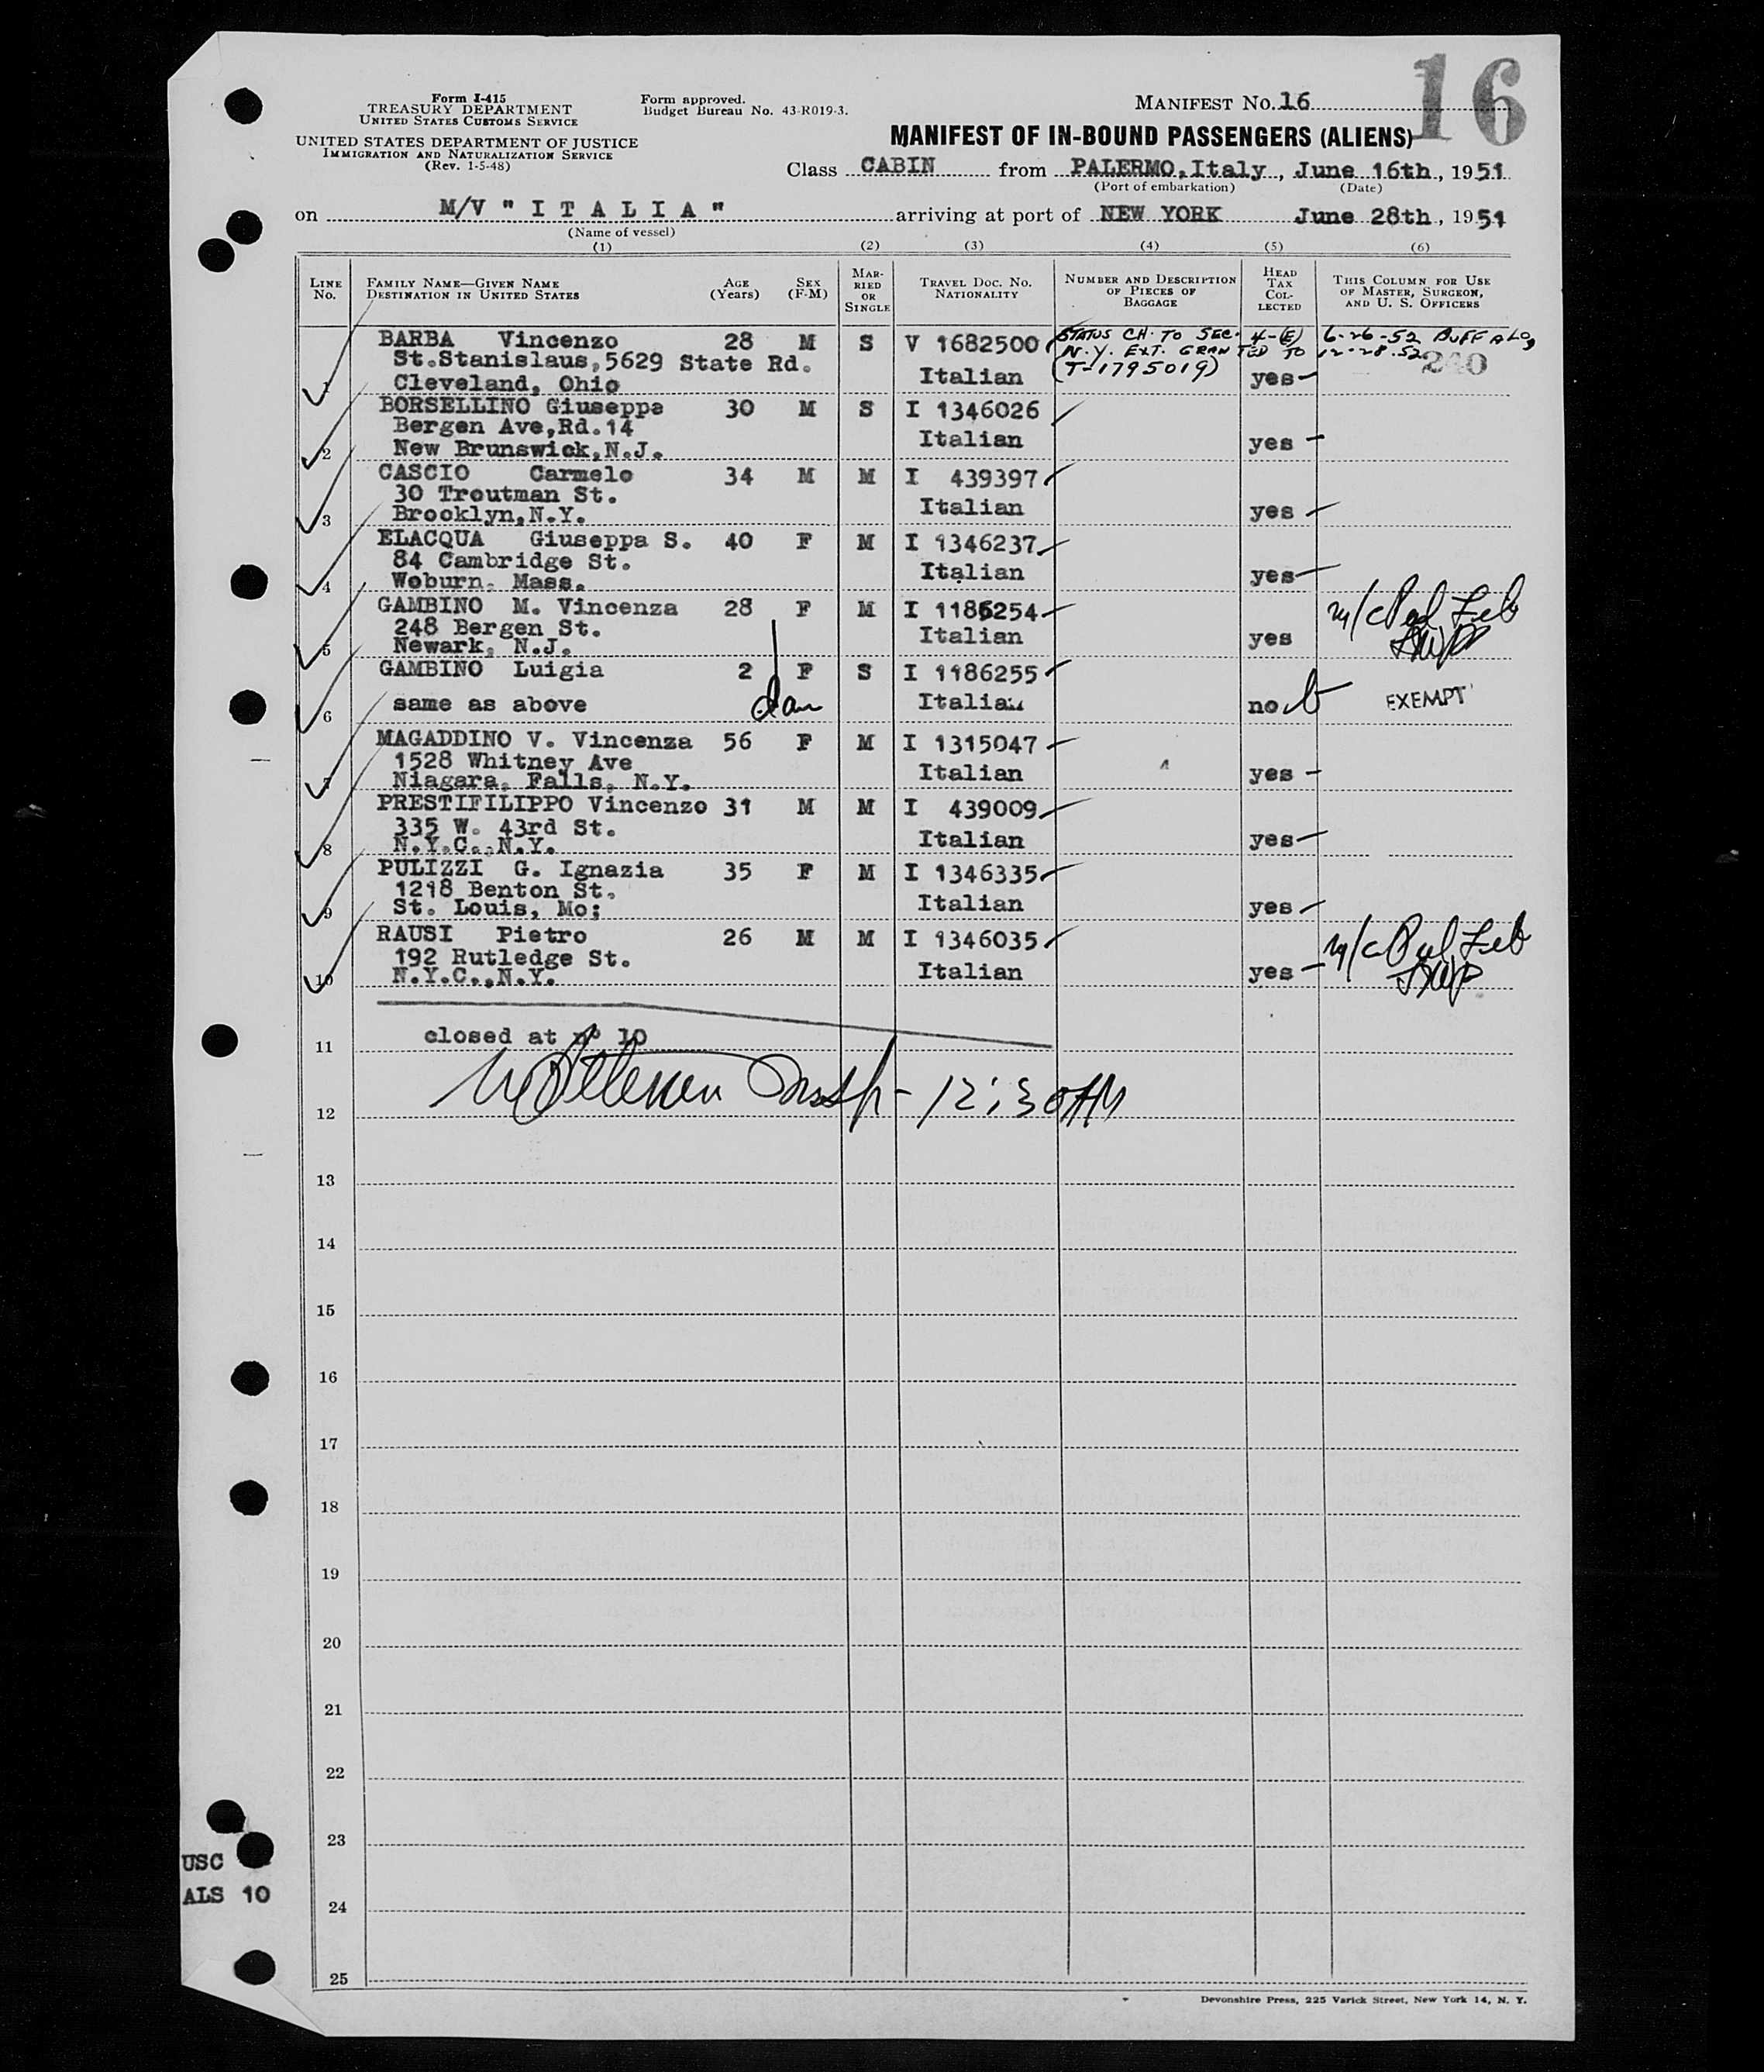 16
Form I-415
TREASURY DEPARTMENT
UNITED STATES CUSTOMS SERVICE
UNITED STATES DEPARTMENT OF JUSTICE
IMMIGRATION AND NATURALIZATION SERVICE
(Rev. 1-5-48)
Form approved.
Budget Bureau No. 43-R019-3.
MANIFEST NO. 16
MANIFEST OF IN-BOUND PASSENGERS (ALIENS)
Class CABIN from PALERMO, Italy, June 16th, 1951
(Port of embarkation) (Date)
on M/V " I T A L I A " arriving at port of NEW YORK June 28th, 1951
(Name of vessel)
(1) (2) (3) (4) (5) (6)
LINE No.
FAMILY NAME—GIVEN NAME
DESTINATION IN UNITED STATES
AGE (Years)
SEX (F-M)
MARRIED OR SINGLE
TRAVEL DOC. NO. NATIONALITY
NUMBER AND DESCRIPTION OF PIECES OF BAGGAGE
HEAD TAX COLLECTED
THIS COLUMN FOR USE OF MASTER, SURGEON, AND U. S. OFFICERS
BARBA Vincenzo 28 M S V 1682500 STATUS CH. TO SEC. 4-(E) 6-26-52 BUFFALO,
St.Stanislaus,5629 State Rd. N.Y. EXT. GRANTED TO 12-28-52
1 Cleveland, Ohio Italian (T-1795019) yes 240
BORSELLINO Giuseppe 30 M S I 1346026
Bergen Ave,Rd.14
2 New Brunswick,N.J. Italian yes
CASCIO Carmelo 34 M M I 439397
30 Troutman St.
3 Brooklyn,N.Y. Italian yes
ELACQUA Giuseppa S. 40 F M I 1346237
84 Cambridge St.
4 Woburn, Mass. Italian yes
GAMBINO M. Vincenza 28 F M I 1186254
248 Bergen St.
5 Newark, N.J. Italian yes
GAMBINO Luigia 2 F S I 1186255
6 same as above dau Italian no EXEMPT
MAGADDINO V. Vincenza 56 F M I 1315047
1528 Whitney Ave
7 Niagara, Falls, N.Y. Italian yes
PRESTIFILIPPO Vincenzo 31 M M I 439009
335 W. 43rd St.
8 N.Y.C.,N.Y. Italian yes
PULIZZI G. Ignazia 35 F M I 1346335
1218 Benton St.
9 St. Louis, Mo; Italian yes
RAUSI Pietro 26 M M I 1346035
192 Rutledge St.
10 N.Y.C.,N.Y. Italian yes
closed at nº 10
11
12 12:30 AM
13
14
15
16
17
18
19
20
21
22
23
USC
ALS 10
24
25
Devonshire Press, 225 Varick Street, New York 14, N. Y.